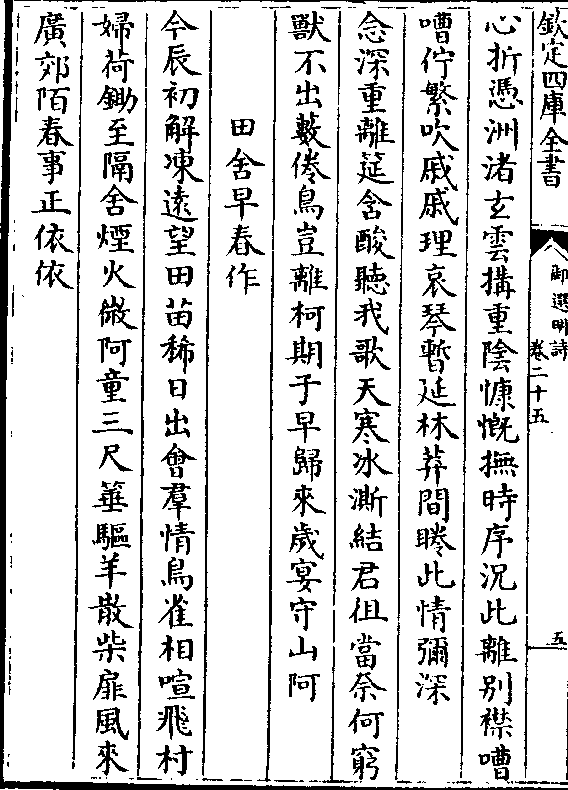 欽定四庫全書
御選明詩
卷二十五
五
心折憑洲渚玄雲搆重陰慷慨撫時序況此離別襟嘈
嘈佇繁吹戚戚理哀琴暫延林莽間睠此情彌深
念深重離筵含酸聽我歌天寒冰澌結君徂當奈何窮
獸不出藪倦鳥豈離柯期子早歸來歲宴守山阿
田舍早春作
今辰初解凍遠望田苗稀日出會羣情鳥雀相喧飛村
婦荷鋤至隔舍煙火微阿童三尺箠驅羊散柴扉風來
廣郊陌春事正依依